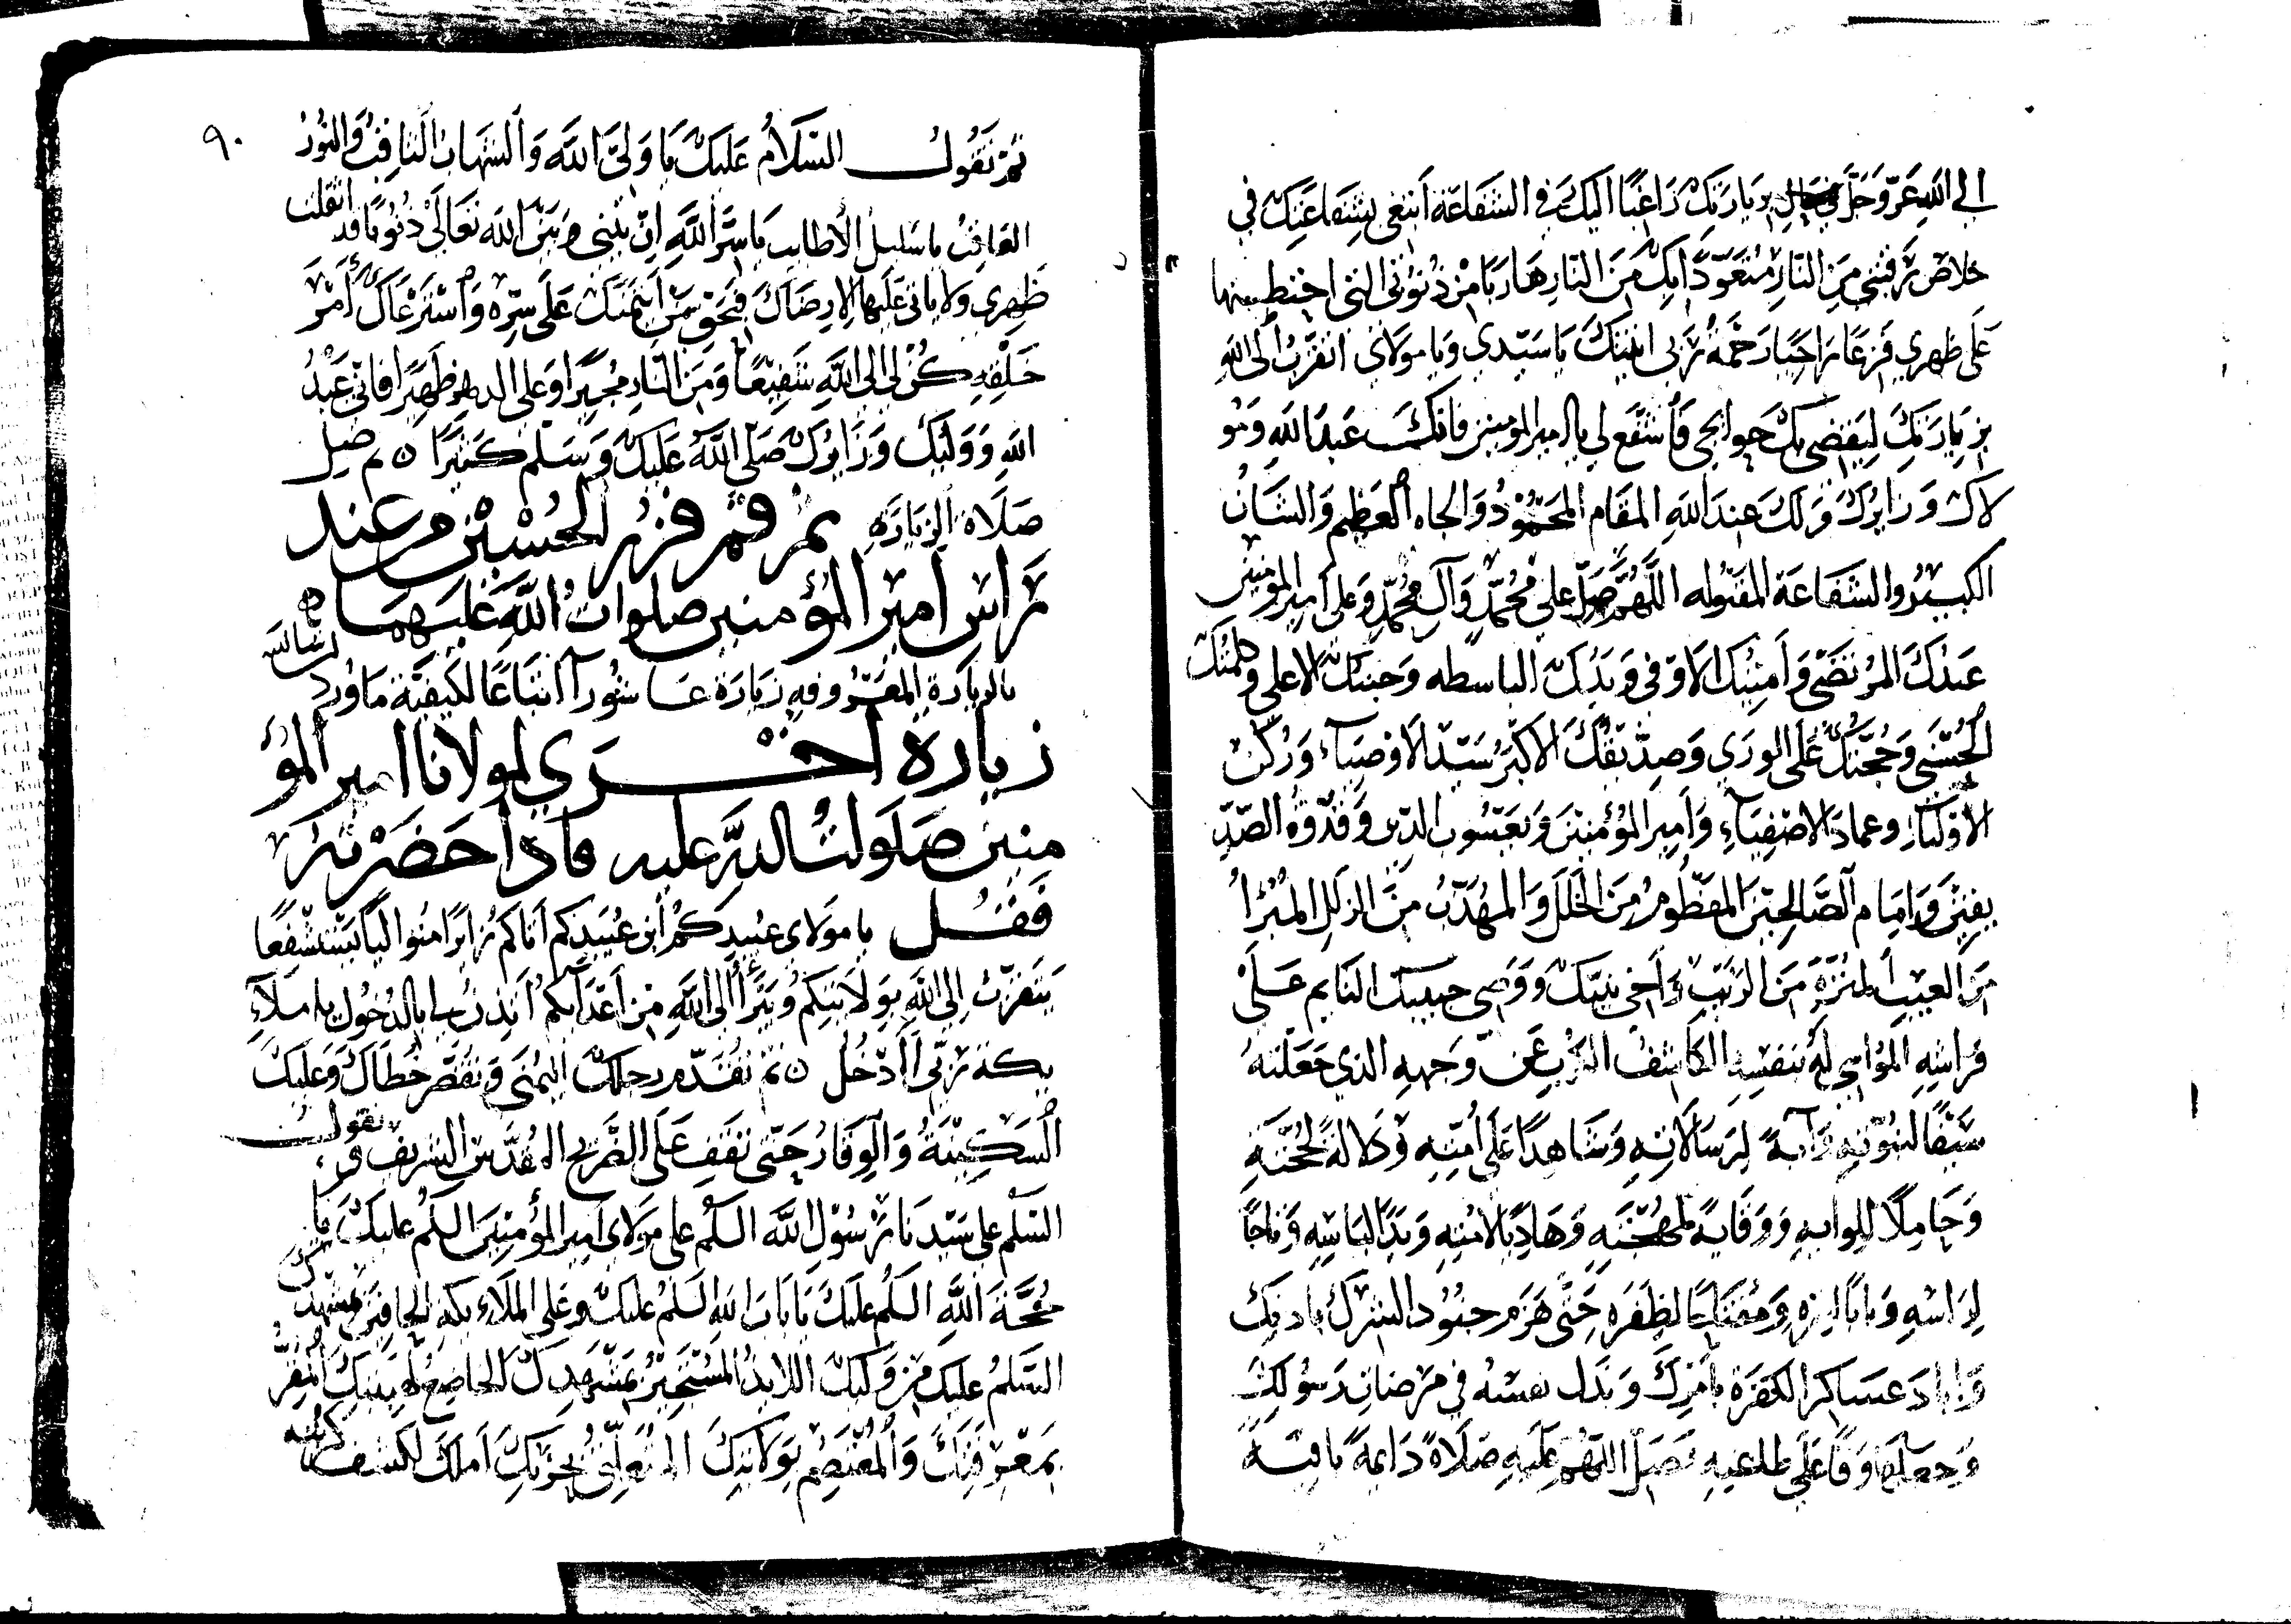 الى الله عز وجل في زيارتك راغبا اليك في الشفاعة ابتغى بشفاعتك في
خلاص رقبتي من النار متعوذا بك من النار هاربا من ذنوبى التى احتطبتها
على ظهري فزعا راجيا رحمة ربى اتيتك يا سيدي ويا مولاى اتقرب الى الله
بزيارتك ليقضى بك حوايجى فاشفع لي يا امير المومنين فانك عبد الله ومو
لاك وزايرك ولك عند الله المقام المحمود والجاه العظيم والشان
الكبير والشفاعة المقبوله اللهم صل على محمد وآل محمد وعلى امير المومنين
عبدك المرتضى وامينك الاوفى ويدك الباسطه وجنبك الاعلى وكلمتك
الحسنى وحجتك على الورى وصديقك الاكبر سيد الاوصياء وركن
الاولياء وعماد الاصفياء وامير المؤمنين ويعسوب الدين وقدوة الصد
يقين وامام الصالحين المفطوم من الخلل والمهذب من الزلل المبرأ
من العيب المنزه من الريب اخى نبيك ووصى حبيبك النايم على
فراشه المواسى له بنفسه الكاشف الكرب عن وجهه الذي جعلته
سيفا لنبوته وآية لرسالاته وشاهدا على امته ودلالة لحجته
وحاملا للوايه ووقاية لمهجته وهاديا لامته ويدا لباسه وتاجا
لراسه وبابا لسره ومفتاحا لظفره حتى هزم جنود الشرك باذنك
واباد عساكر الكفرة بامرك وبذل نفسه في مرضات رسولك
وجعلها وقفا على طاعته فصل اللهم عليه صلاة دايمة باقية
٩٠
ثم تقول السلام عليك يا ولى الله والشهاب الثاقب والنور
العاقب يا سليل الاطايب يا سر الله ان بيني وبين الله تعالى ذنوبا قد اثقلت
ظهري ولا ياتى عليها الا رضاك فبحق من ائتمنك على سره واسترعاك امر
خلقه كن لى الى الله شفيعا ومن النار مجيرا وعلى الدهر ظهيرا فانى عبد
الله ووليك وزايرك صلى الله عليك وسلم كثيرا ثم صل
صلاة الزيارة ثم قم فزر الحسين من عند
راس امير المؤمنين صلوات الله عليهما
بالزيارة المعروفه زيارة عاشورآ اتباعا لكيفية ماورد
زيارة اخرى لمولانا امير المؤ
منين صلوات الله عليه فاذا حضرته
فقل يا مولاى عبيدكم ابن عبيدكم اتاكم زايرا منواليا مستشفعا
يتقرب الى الله بولايتكم ويبرأ الى الله من اعدايكم ااذن لى بالدخول يا ملاء
يكة ربى أأدخل ثم تقدم رجلك اليمنى وتقصر خطاك وعليك
السكينة والوقار حتى تقف على الضريح المقدس الشريف وتقول
السلم على سيدنا رسول الله السلم على مولاى امير المؤمنين السلم عليك يا
حجة الله السلم عليك يا باب الله السلم عليك وعلى الملاءيكه الحافين بمشهدك
السلم عليك من وليك اللايذ المستجير بمشهدك الخاضع لهيبتك المقر
بمعرفتك والمعتصم بولايتك المتعلق بحزبك املك لكشف كربته